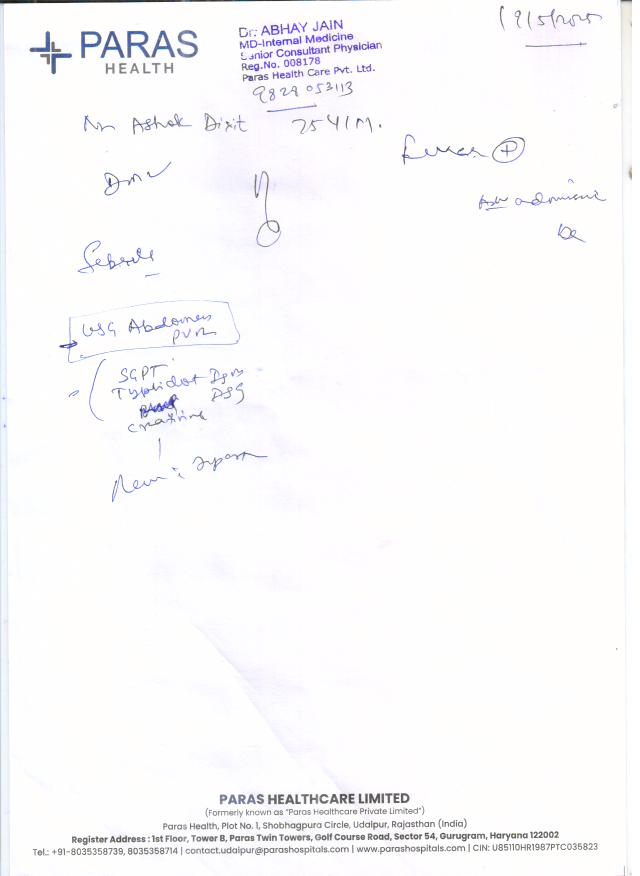 PARAS
HEALTH
Dr. ABHAY JAIN
MD-Internal Medicine
Senior Consultant Physician
Reg.No. 008178
Paras Health Care Pvt. Ltd.
9829053113
19/5/2025
Mr Ashok Dixit 25Y/M.
Febrile
USG Abdomen
PVR
SGPT
Typhidot IgM
IgG
creatinine
PARAS HEALTHCARE LIMITED
(Formerly known as "Paras Healthcare Private Limited")
Paras Health, Plot No. 1, Shobhagpura Circle, Udaipur, Rajasthan (India)
Register Address : 1st Floor, Tower B, Paras Twin Towers, Golf Course Road, Sector 54, Gurugram, Haryana 122002
Tel.: +91-8035358739, 8035358714 | contact.udaipur@parashospitals.com | www.parashospitals.com | CIN: U85110HR1987PTC035823